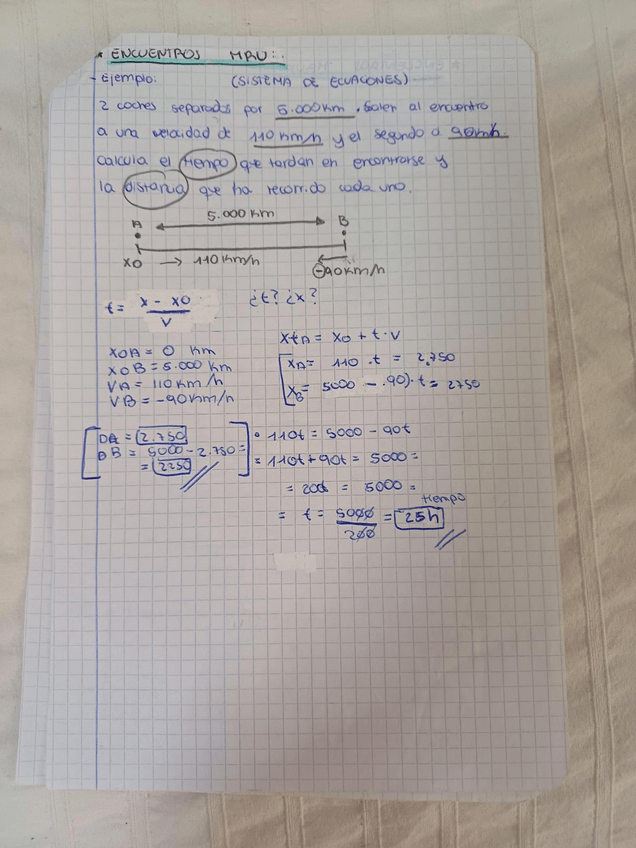 * ENCUENTROS MRU:.
- Ejemplo: (SISTEMA DE ECUACIONES)
2 coches separados por 5.000 km. Salen al encuentro
a una velocidad de 110 km/h y el segundo a 90km/h.
Calcula el tiempo que tardan en encontrarse y
la distancia que ha recorrido cada uno.
5.000 km
A B
x0 → 110 km/h -90km/h
t = x - x0 / v ¿t? ¿x?
xtA = x0 + t · v
x0A = 0 km
x0B = 5.000 km
VA = 110 km/h
VB = -90 km/h
xA = 110 . t = 2.750
xB = 5000 - .90) · t = 2750
DA = 2.750
DB = 5000 - 2.750 =
= 2250
• 110t = 5000 - 90t
= 110t + 90t = 5000 =
= 200t = 5000 =
tiempo
= t = 5000 / 200 = 25h